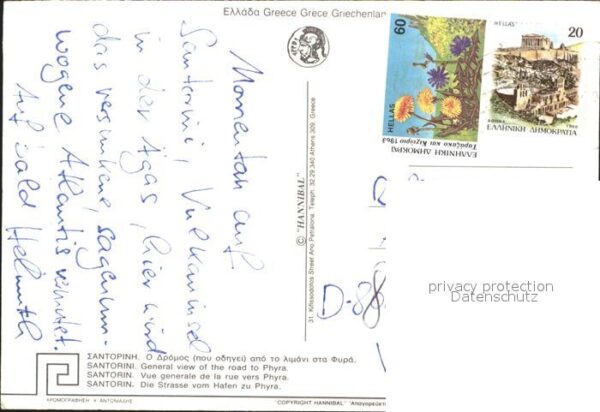 Ελλάδα Greece Grece Griechenlan
60
HELLAS
ΕΛΛΗΝΙΚΗ ΔΗΜΟΚΡΑΤ
HELLAS
20
ΕΛΛΗΝΙΚΗ ΔΗΜΟΚΡΑΤΙΑ
Momentan auf
Santorini, Vulkaninsel
in der Ägäis, hier wird
das versunkene, sagenum-
wogene Atlantis vermutet.
Auf bald Helmuth
© "HANNIBAL"
31, Kifissodotos Street Ano Petralona, Teleph: 32.29.340 Athens 309, Greece
D-88
privacy protection
Datenschutz
ΣΑΝΤΟΡΙΝΗ. Ο Δρόμος (που οδηγεί) από το λιμάνι στα Φυρά.
SANTORINI. General view of the road to Phyra.
SANTORINI. Vue generale de la rue vers Phyra.
SANTORIN. Die Strasse vom Hafen zu Phyra.
"COPYRIGHT HANNIBAL"